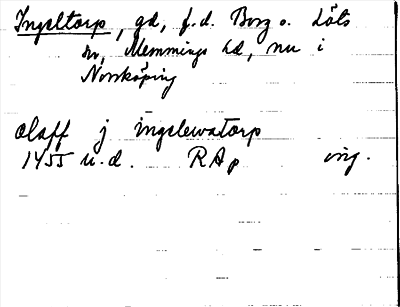 Ingeltorp, gd, f.d. Borg o. Löts
sn, Memmings hd, nu i
Norrköping
olaff j ingelewatorp
1455 u.d. RAp orig.